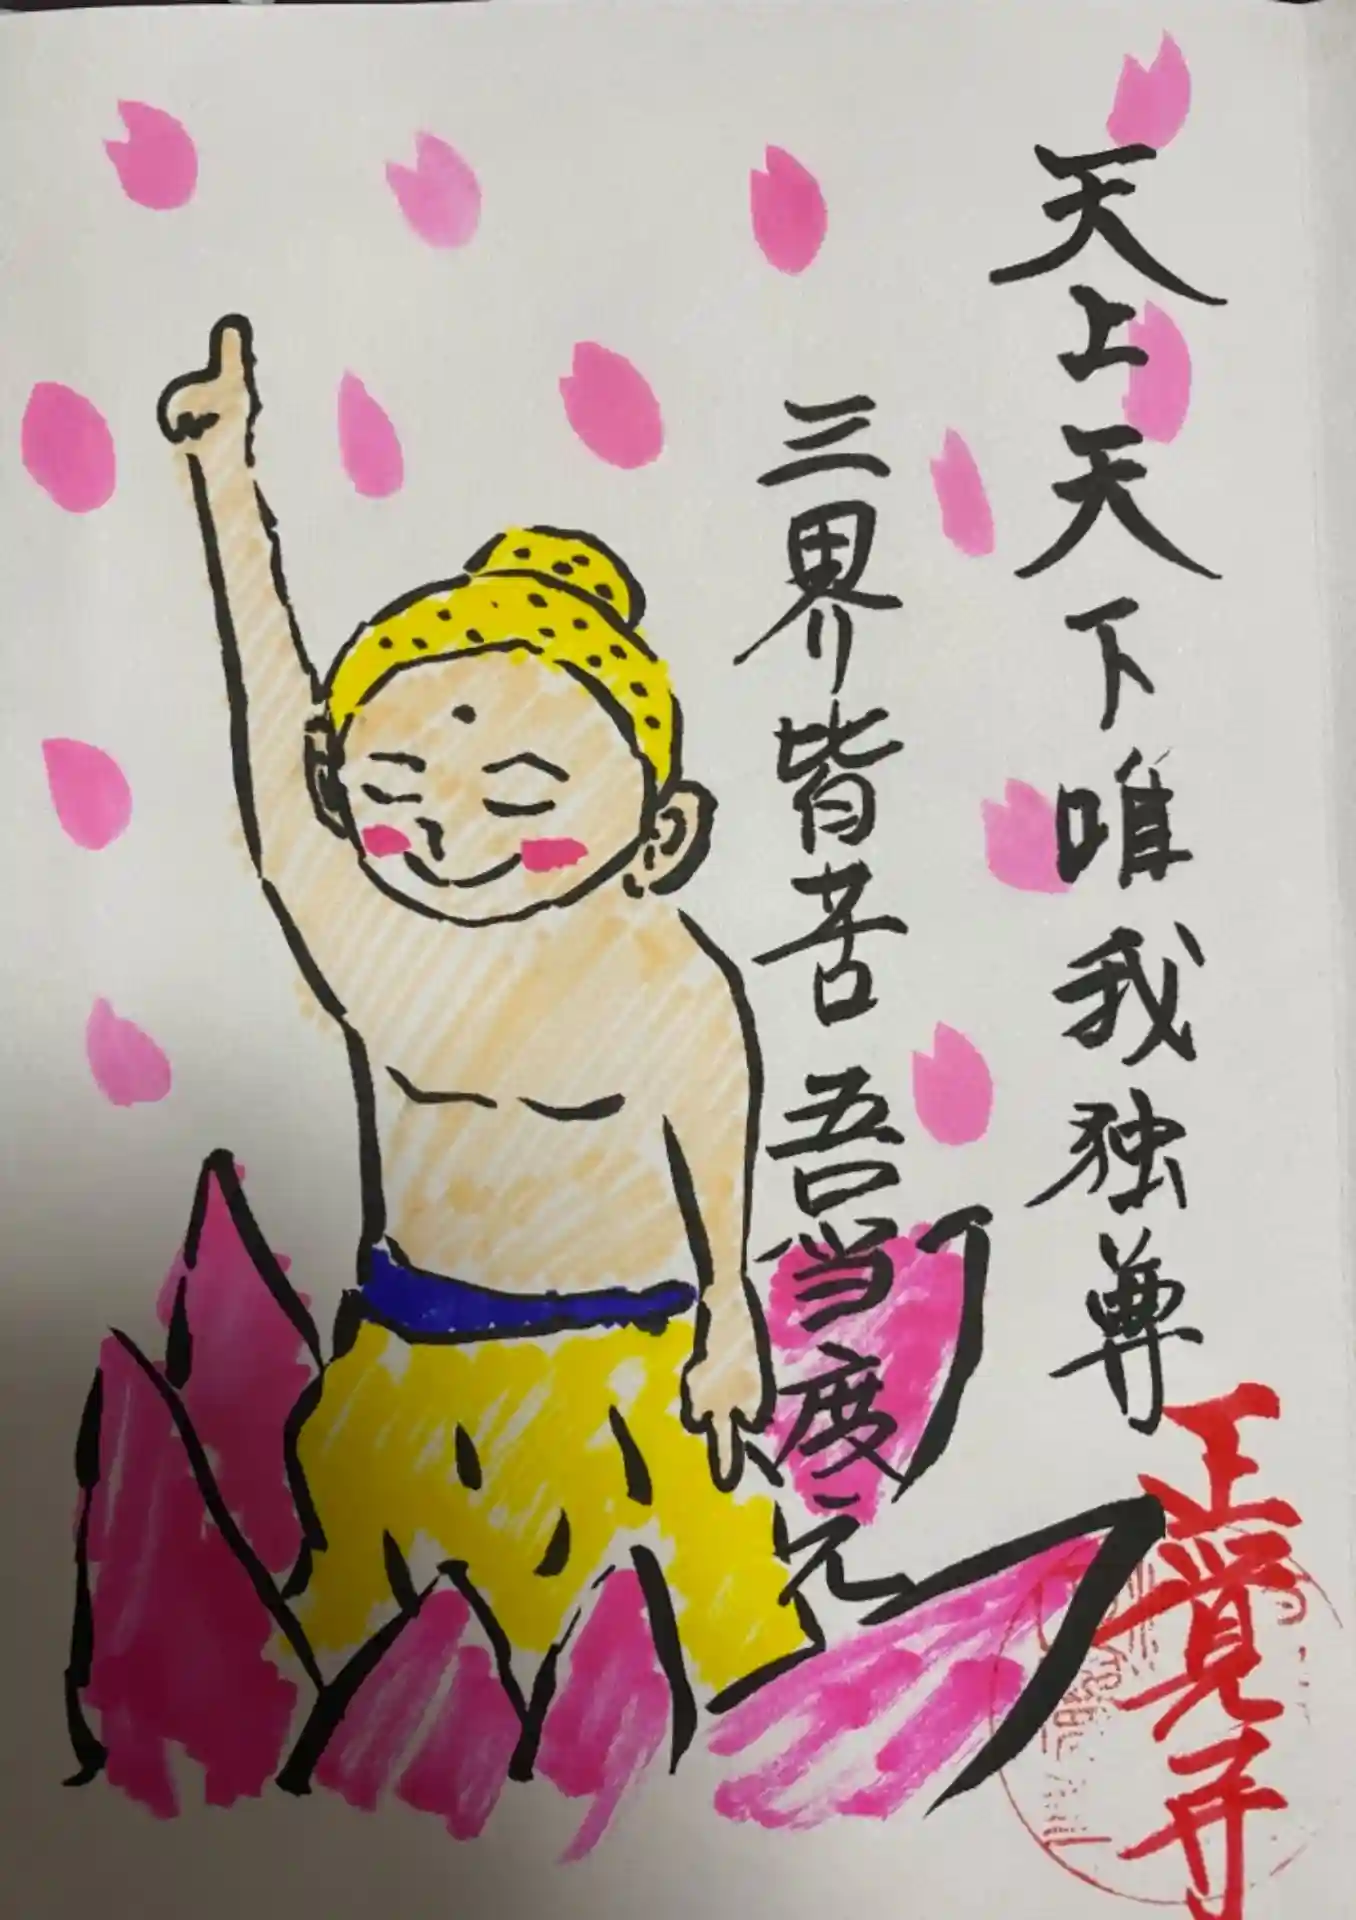 天上天下唯我独尊
三界皆苦吾当度之
正覚寺